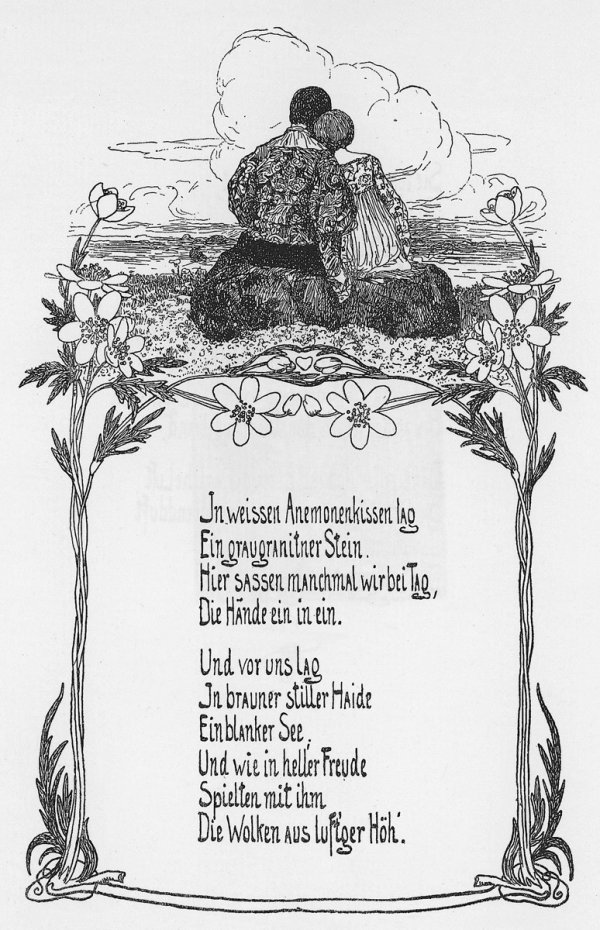 In weissen Anemonenkissen lag
Ein graugranitner Stein.
Hier sassen manchmal wir bei Tag,
Die Hände ein in ein.
Und vor uns lag
In brauner stiller Haide
Ein blanker See,
Und wie in heller Freude
Spielten mit ihm
Die Wolken aus luft'ger Höh'.